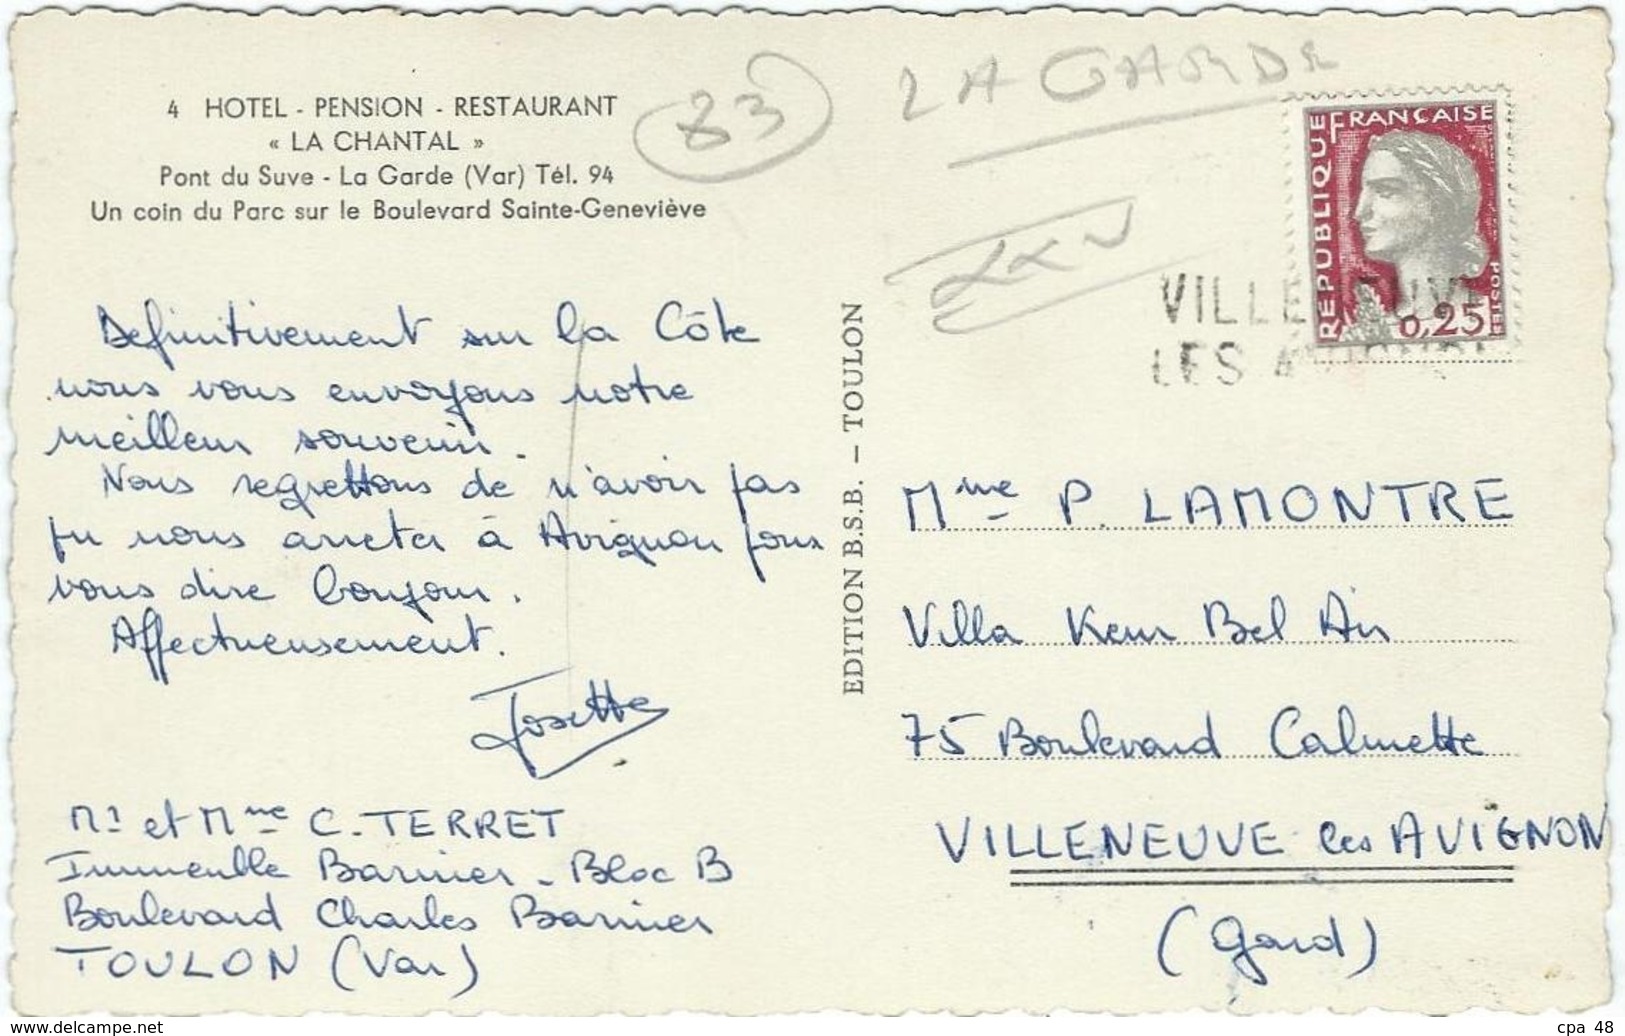 4 HOTEL - PENSION - RESTAURANT
« LA CHANTAL »
Pont du Suve - La Garde (Var) Tél. 94
Un coin du Parc sur le Boulevard Sainte-Geneviève
83
LA GARDE
REPUBLIQUE FRANÇAISE
POSTES
0,25
VILLENEUVE
LES AVIGNON
Definitivement sur la Côte
nous vous envoyons notre
meilleur souvenir.
Nous regrettons de n'avoir pas
pu nous arreter à Avignon pour
vous dire bonjour.
Affectueusement.
Josette
Mr et Mme C. TERRET
Immeuble Barnier - Bloc B
Boulevard Charles Barnier
TOULON (Var)
EDITION B.S.B. – TOULON
Mme P. LAMONTRE
Villa Keur Bel Air
75 Boulevard Calmette
VILLENEUVE les AVIGNON
(Gard)
www.delcampe.net
cpa 48